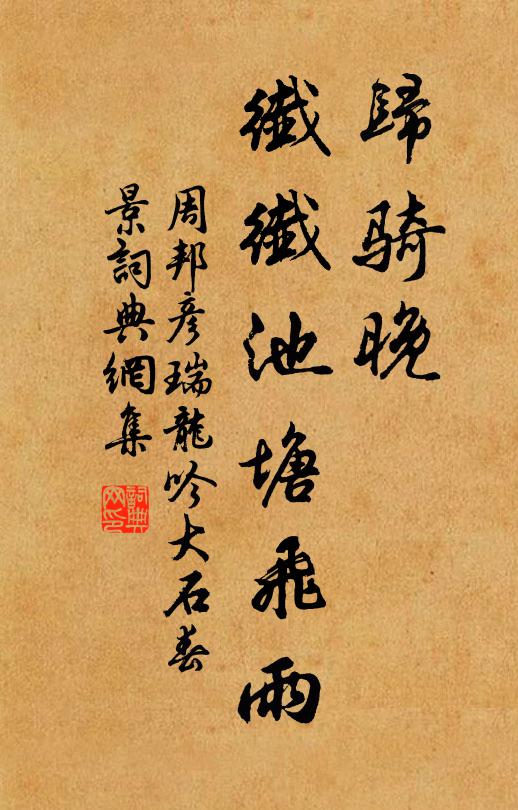 歸騎晚
纖纖池塘飛雨
周邦彥瑞龍吟大石春
景詞典網集
詞典
网印